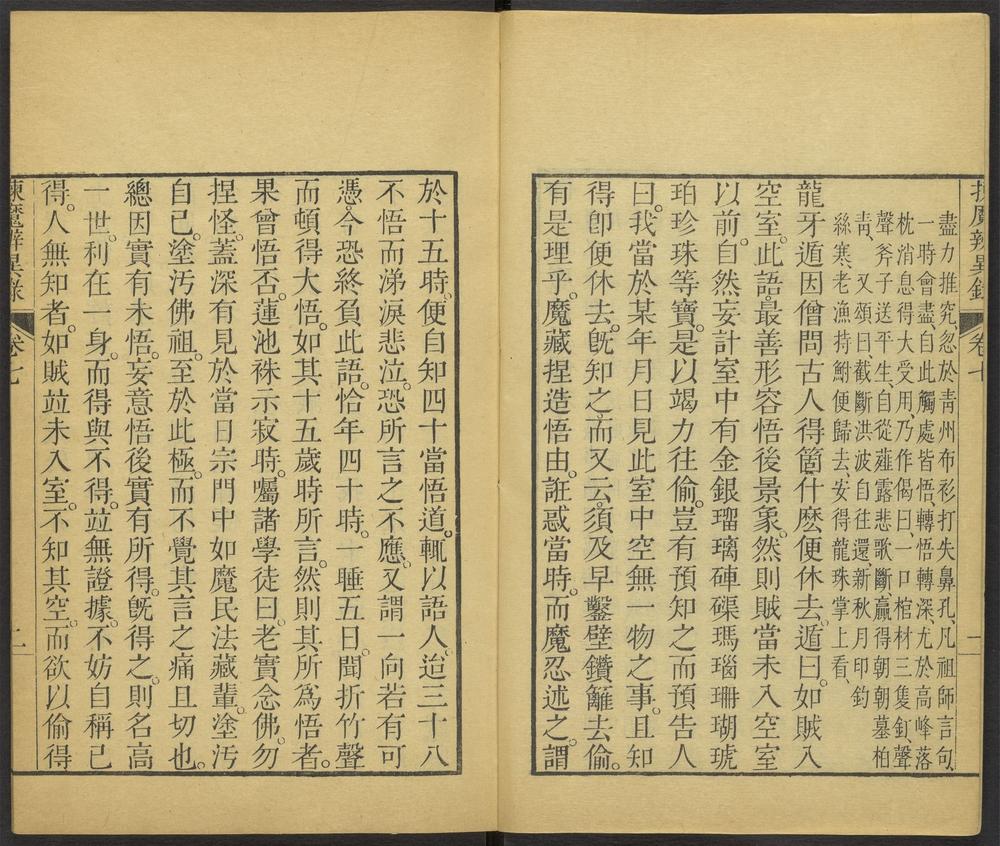 揀魔辨異錄
卷七
二
盡力推究忽於青州布衫打失鼻孔、凡祖師言句、
一時會盡、自此觸處皆悟、轉悟轉深、尤於高峰落
枕消息得大受用、乃作偈曰、一口棺材三隻釘、聲
聲斧子送平生、自從薤露悲歌斷、贏得朝朝墓柏
靑、又頌曰、截斷洪波自往還、新秋月印釣
絲寒、老漁持鮒便歸去、安得龍珠掌上看、
龍牙遁因僧問古人得箇什麽便休去。遁曰。如賊入
空室。此語。最善形容悟後景象。然則賊當未入空室
以前。自然妄計室中有金銀瑠璃硨磲瑪瑙珊瑚琥
珀珍珠等寶。是以竭力往偷。豈有預知之而預告人
曰。我當於某年月日見此室中空無一物之事。且知
得卽便休去。旣知之。而又云。須及早鑿壁鑽籬去偷。
有是理乎。魔藏捏造悟由。誑惑當時。而魔忍述之。謂
於十五時。便自知四十當悟道。輒以語人。迨三十八
不悟而涕淚悲泣。恐所言之不應。又謂一向若有可
憑。今恐終負此語。恰年四十時。一睡五日。聞折竹聲
而頓得大悟。如其十五歲時所言。然則其所爲悟者。
果曾悟否。蓮池祩示寂時。囑諸學徒曰。老實念佛。勿
捏怪。蓋深有見於當日宗門中如魔民法藏輩。塗污
自己。塗污佛祖。至於此極。而不覺其言之痛且切也。
總因實有未悟。妄意悟後實有所得。旣得之。則名高
一世。利在一身。而得與不得。竝無證據。不妨自稱已
得。人無知者。如賊竝未入室。不知其空。而欲以偷得
揀魔辨異錄
卷七
二